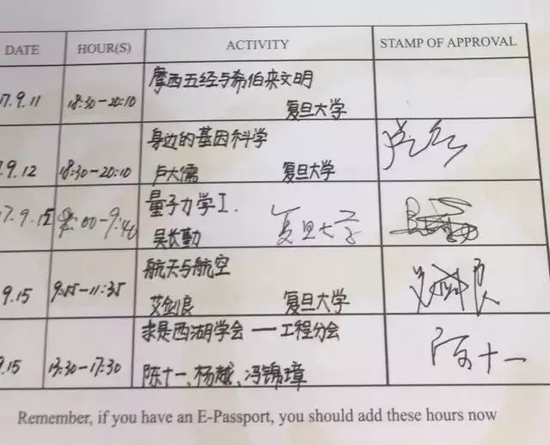 DATE HOUR(S) ACTIVITY STAMP OF APPROVAL
7.9.11 18:30-20:10 摩西五经与希伯来文明
复旦大学
身边的基因科学
.9.12 18:30-20:10 卢大儒 复旦大学
量子力学I.
7.9.15 :00-9:40 吴长勤 复旦大学
航天与航空
9.15 9:55-11:35 艾剑良 复旦大学
求是西湖学会 — 工程分会
9.15 13:30-17:30 陈十一、杨越、冯锦璋 陈十一
Remember, if you have an E-Passport, you should add these hours now